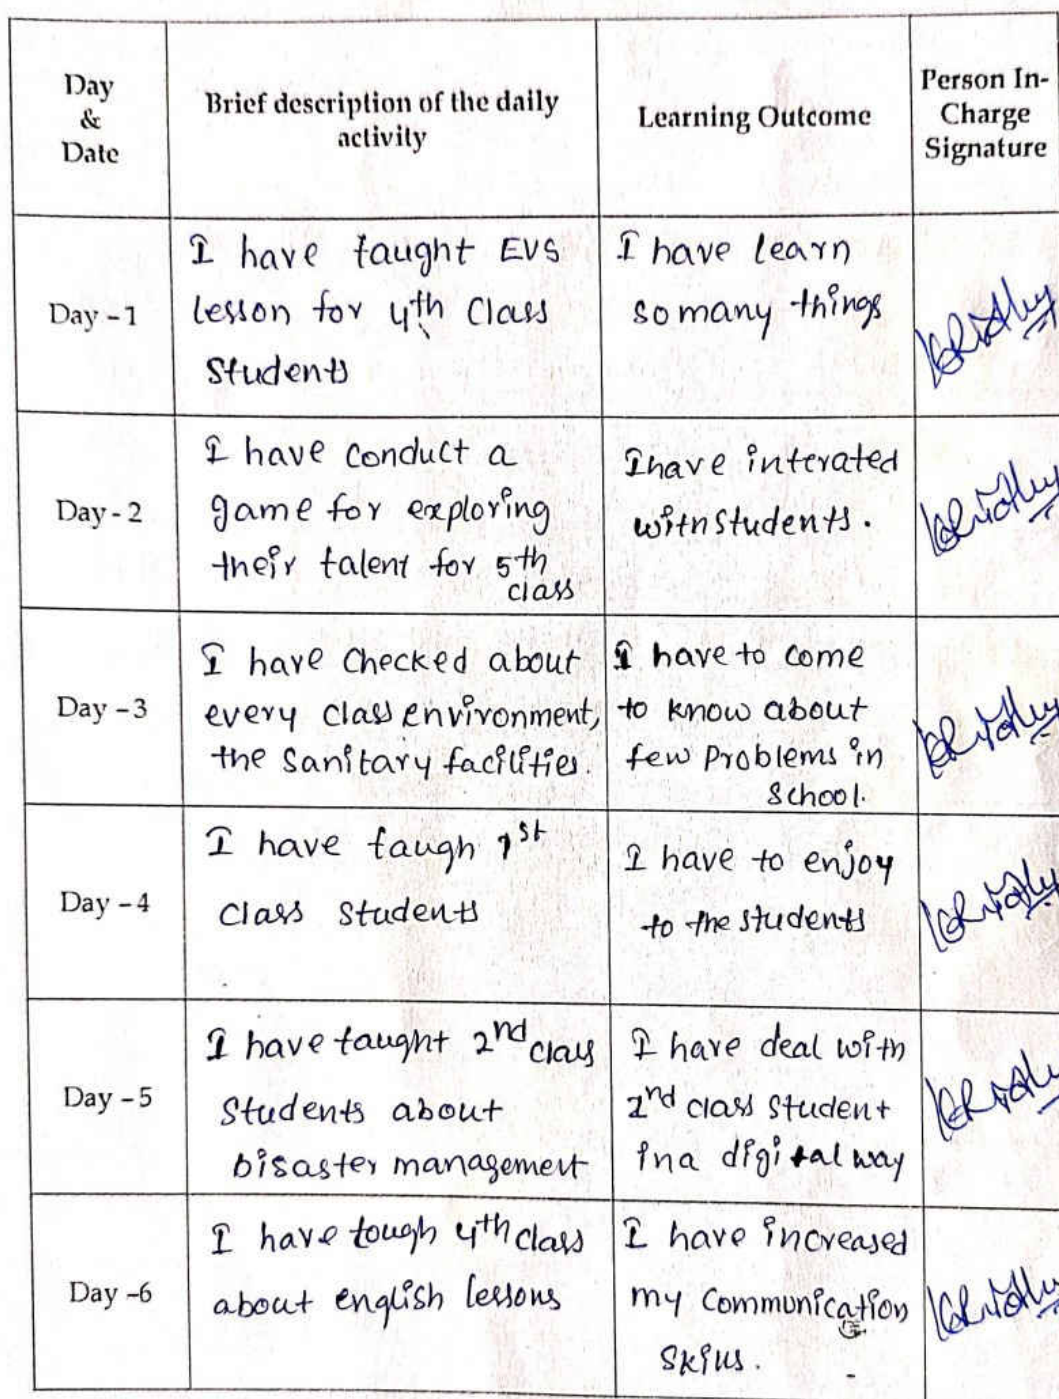 Day
&
Date
Brief description of the daily
activity
Learning Outcome
Person In-
Charge
Signature
Day - 1
I have taught EVS
lesson for 4th Class
Students
I have learn
so many things
Day - 2
I have conduct a
game for exploring
their talent for 5th
class
I have interated
with students.
Day - 3
I have checked about
every class environment,
the sanitary facilities.
I have to come
to know about
few problems in
School.
Day - 4
I have taugh 1st
class students
I have to enjoy
to the students
Day - 5
I have taught 2nd class
students about
Disaster management
I have deal with
2nd class student
in a digital way
Day -6
I have tough 4th class
about english lessons
I have increased
my communication
skills.